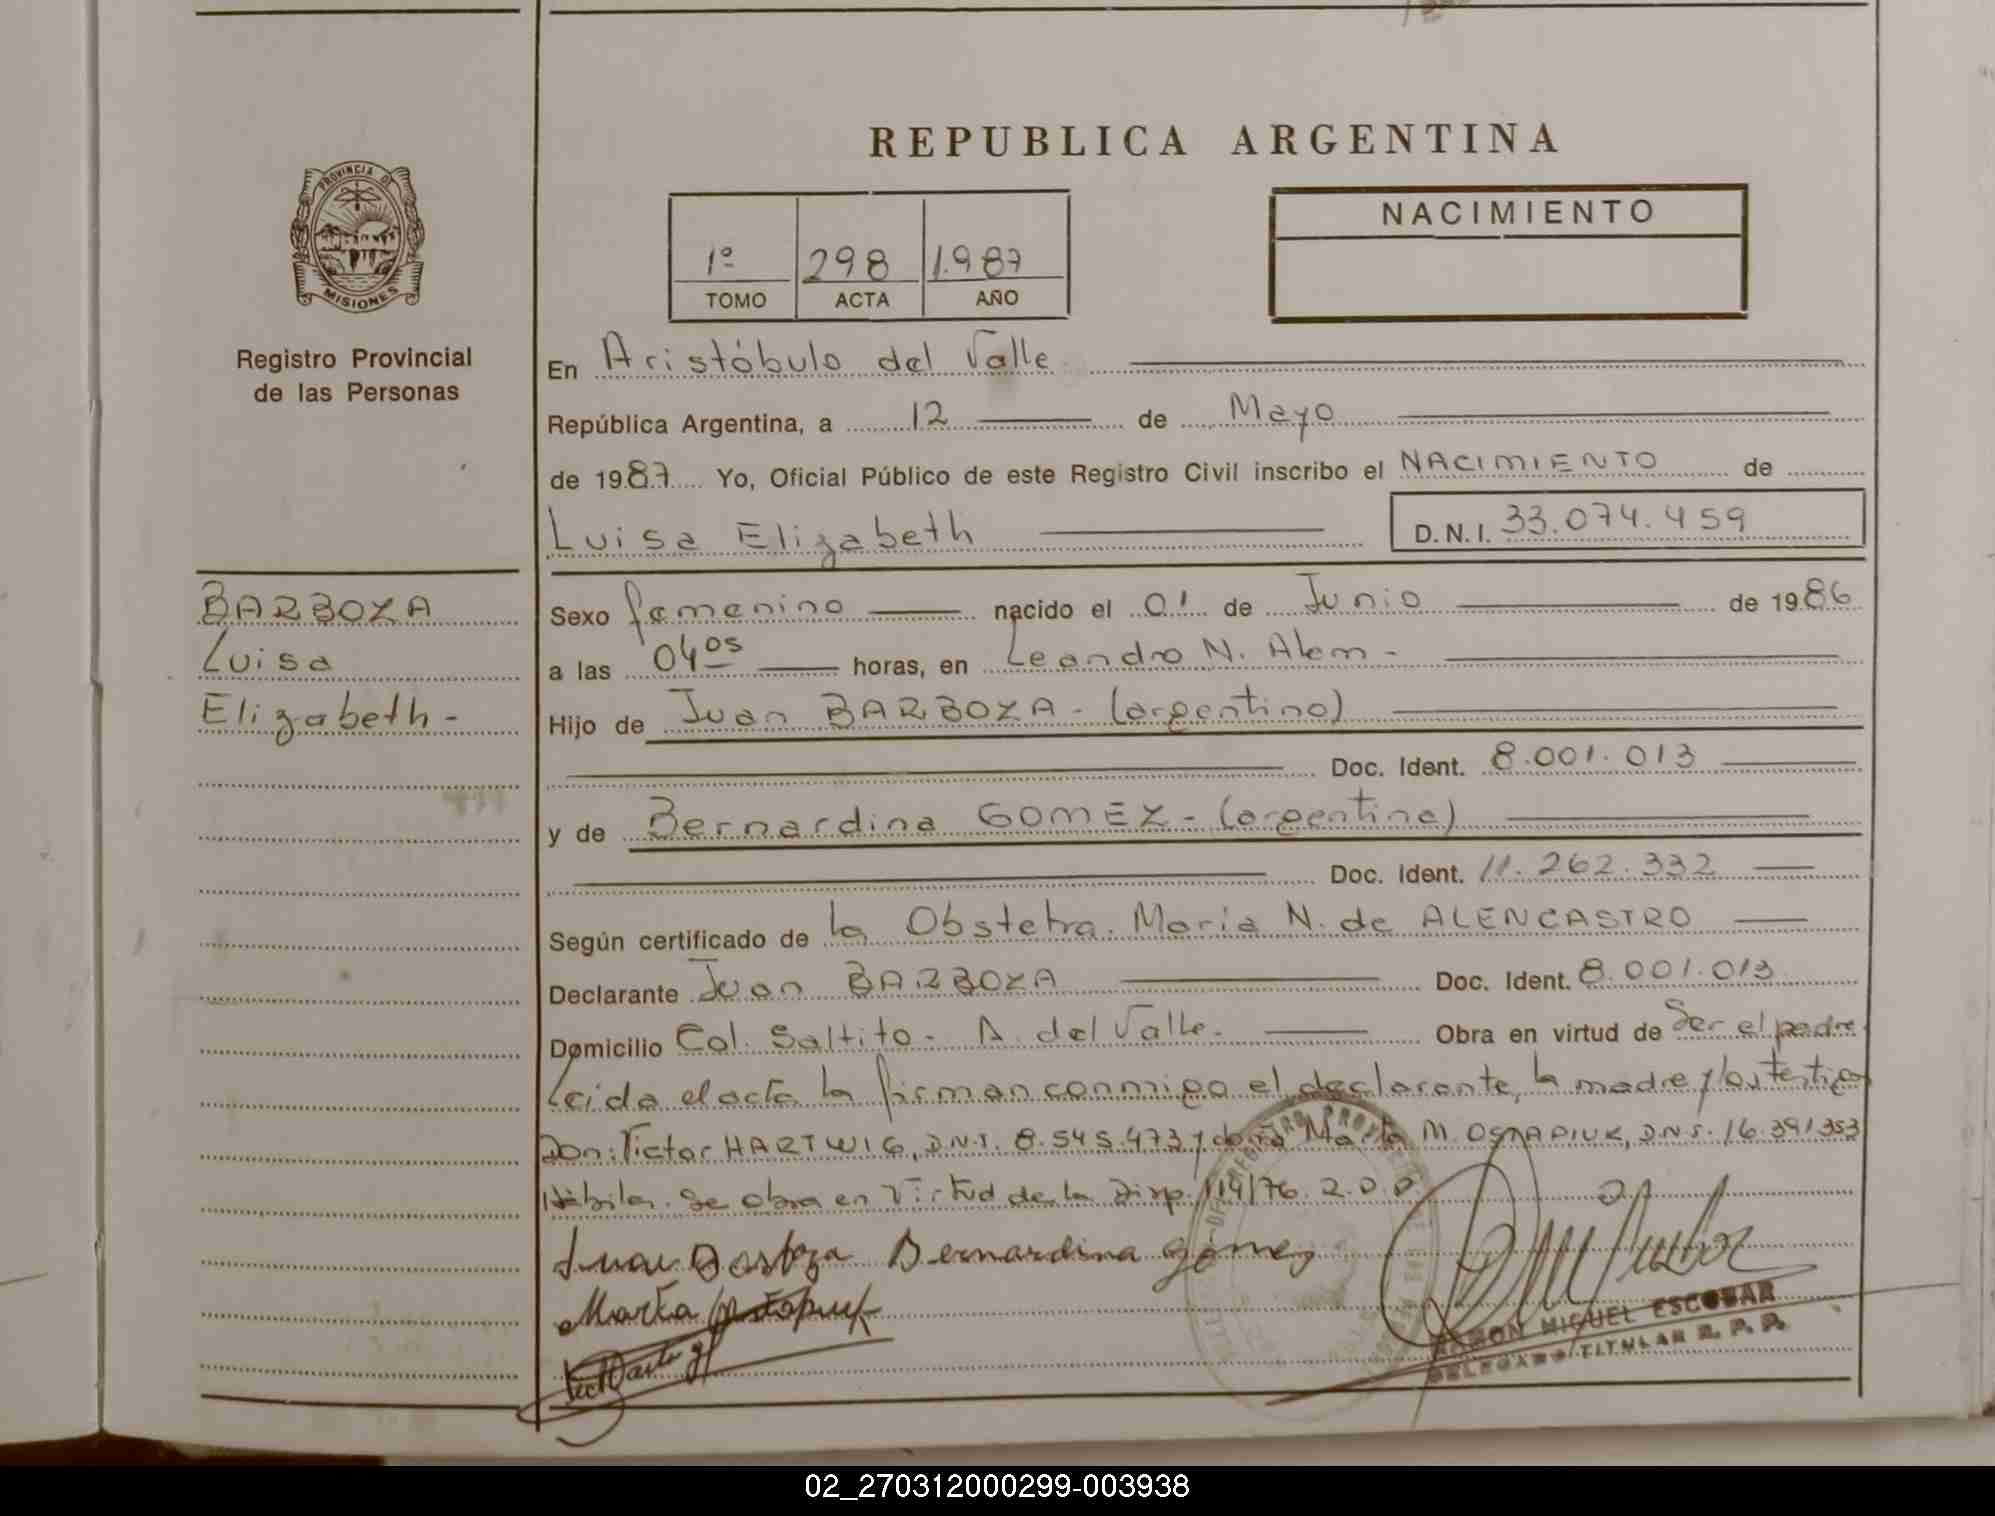 REPUBLICA ARGENTINA
PROVINCIA DE
MISIONES
Registro Provincial
de las Personas
1º 298 1.987
TOMO ACTA AÑO
NACIMIENTO
En Aristóbulo del Valle
República Argentina, a 12 de Mayo
de 1987 Yo, Oficial Público de este Registro Civil inscribo el NACIMIENTO de
Luisa Elizabeth D.N.I. 33.074.459
BARBOZA
Luisa
Elizabeth -
Sexo femenino nacido el 01 de Junio de 1986
a las 04 05 horas, en Leandro N. Alem -
Hijo de Juan BARBOZA - (argentino)
Doc. Ident. 8.001.013
y de Bernardina GOMEZ - (argentina)
Doc. Ident. 11.262.332
Según certificado de la Obstetra. Maria N. de ALENCASTRO
Declarante Juan BARBOZA Doc. Ident. 8.001.013
Domicilio Col. Saltito - A. del Valle. Obra en virtud de Ser el padre
Leida el acta la firman conmigo el declarante, la madre y los testigos
Don: Victor HARTWIG, D.N.I. 8.545.473 y doña Marta M. OSTAPIUK, D.N.I. 16.391.353
Hábiles. Se obra en Virtud de la Disp. 114/76.
Juan Barboza Bernardina Gómez
Marta Ostapiuk
RAMON MIGUEL ESCOBAR
DELEGADO TITULAR R. P. P.
02_270312000299-003938